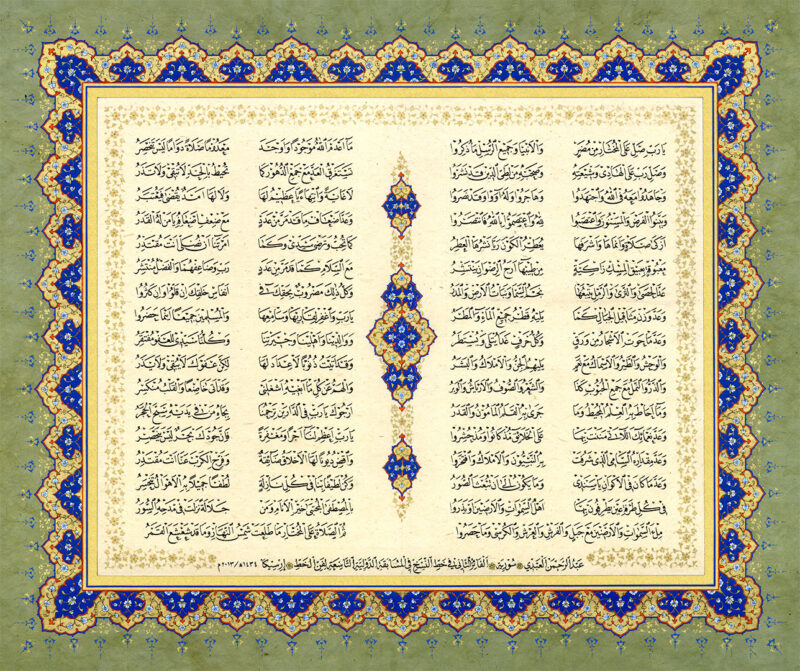 يا رب صل على المختار من مضر والأنبيا وجميع الرسل ما ذكروا
وصل رب على الهادي وشيعته وصحبه من لطي الدين قد نشروا
وجاهدوا معه في الله واجتهدوا وهاجروا وله آووا وقد نصروا
وبينوا الفرض والمسنون واعتصبوا لله واعتصموا بالله فانتصروا
أزكى صلاة وأنماها وأشرفها يعطر الكون ريا نشرها العطر
معبوقة بعبيق المسك زاكية من طيبها أرج الرضوان ينتشر
عد الحصى والثرى والرمل يتبعها نجم السما ونبات الأرض والمدر
وعد وزن مثاقيل الجبال كما يليه قطر جميع الماء والمطر
وعد ما حوت الأشجار من ورق وكل حرف غدا يتلى ويستطر
والوحش والطير والأسماك مع نعم يليهم الجن والأملاك والبشر
والذر والنمل مع جمع الحبوب كذا والشعر والصوف والأرياش والوبر
وما أحاط به العلم المحيط وما جرى به القلم المأمور والقدر
وعد نعمائك اللاتي مننت بها على الخلائق مذ كانوا ومذ حشروا
وعد مقداره السامي الذي شرفت به النبيون والأملاك وافتخروا
وعد ما كان في الأكوان يا سندي وما يكون إلى أن تبعث الصور
في كل طرفة عين يطرفون بها أهل السموات والأرضين أو يذروا
ملء السموات والأرضين مع جبل والفرش والعرش والكرسي وما حصروا
ما أعدم الله موجودا وأوجد معدوما صلاة دواما ليس تنحصر
تستغرق العد مع جمع الدهور كما تحيط بالحد لا تبقي ولا تذر
لا غاية وانتهاء يا عظيم لها ولا لها أمد يقضى فيعتبر
وعد أضعاف ما قد مر من عدد مع ضعف أضعافه يا من له القدر
كما تحب وترضى سيدي وكما أمرتنا أن نصلي أنت مقتدر
مع السلام كما قد مر من عدد رب وضاعفهما والفضل منتشر
وكل ذلك مضروب بحقك في أنفاس خلقك إن قلوا وإن كثروا
يا رب واغفر لقاريها وسامعها والمسلمين جميعا أينما حضروا
ووالدينا وأهلينا وجيرتنا وكلنا سيدي للعفو مفتقر
وقد أتيت ذنوبا لا عداد لها لكن عفوك لا يبقي ولا يذر
والهم عن كل ما أبغيه أشغلني وقد أتى خاضعا والقلب منكسر
أرجوك يا رب في الدارين ترحمنا بجاه من في يديه سبح الحجر
يا رب أعظم لنا أجرا ومغفرة فإن جودك بحر ليس ينحصر
واقض ديونا لها الأخلاق ضائقة وفرج الكرب عنا أنت مقتدر
وكن لطيفا بنا في كل نازلة لطفا جميلا به الأهوال تنحسر
بالمصطفى المجتبى خير الأنام ومن جلالة نزلت في مدحه السور
ثم الصلاة على المختار ما طلعت شمس النهار وما قد شعشع القمر
عبد الرحمن العبدي سورية الفائز الثاني في خط النسخ في المسابقة الدولية التاسعة لفن الخط إرسيكا ١٤٣٤هـ/٢٠١٣م